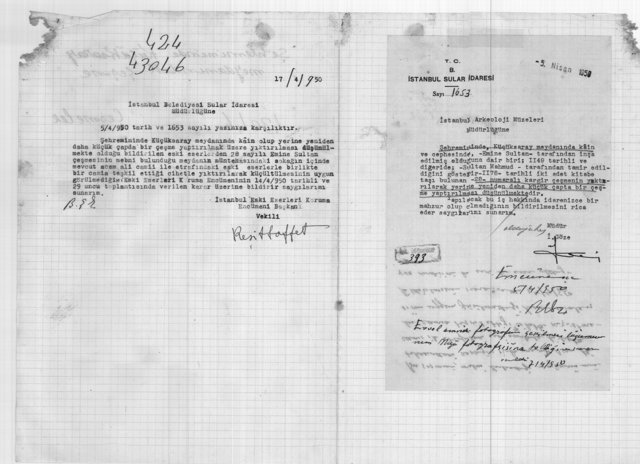 424
43046
17/4/950
İstanbul Belediyesi Sular İdaresi
Müdürlüğüne
5/4/950 tarih ve 1653 sayılı yazınıza karşılıktır.
Şehremininde Küçüksaray meydanında kâin olup yerine yeniden
daha küçük çapda bir çeşme yaptırılmak üzere yıktırılması düşünül-
mekte olduğu bildirilen eski eserlerden 28 sayılı Emine Sultan
çeşmesinin mebni bulunduğu meydanın müntehasındaki sokağın içinde
mevcut acem ali camii ile etrafındaki eski eserlerle birlikte
bir camia teşkil ettiği cihetle yıktırılarak küçültülmesinin uygun
görülmediği Eski Eserleri Koruma Encümeninin 14/4/950 tarihli ve
29 uncu toplantısında verilen karar üzerine bildirir saygılarımı
sunarım.
İstanbul Eski Eserleri Koruma
Encümeni Başkanı
Vekili
T. C.
B.
İSTANBUL SULAR İDARESİ
Sayı 1653
-5 Nisan 1950
İstanbul Arkeoloji Müzeleri
Müdürlüğüne
Şehremininde, Küçüksaray meydanında kâin
ve cephesinde, -Emine Sultan- tarafından inşa
edilmiş olduğuna dair biri 1140 tarihli ve
diğeride; -Sultan Mahmud - tarafından tamir edil-
diğini gösterir-1178- tarihli iki adet kitabe
taşı bulunan -28- numaralı kargir çeşmenin yıktı-
rılarak yerine yeniden daha küçük çapta bir çeş-
me yaptırılması düşünülmektedir.
Yapılacak bu iş hakkında idarenizce bir
mahzur olup olmadığının bildirilmesini rica
eder saygılarımı sunarım.
Müdür
393
Encümenin
5/4/950
7/4/950